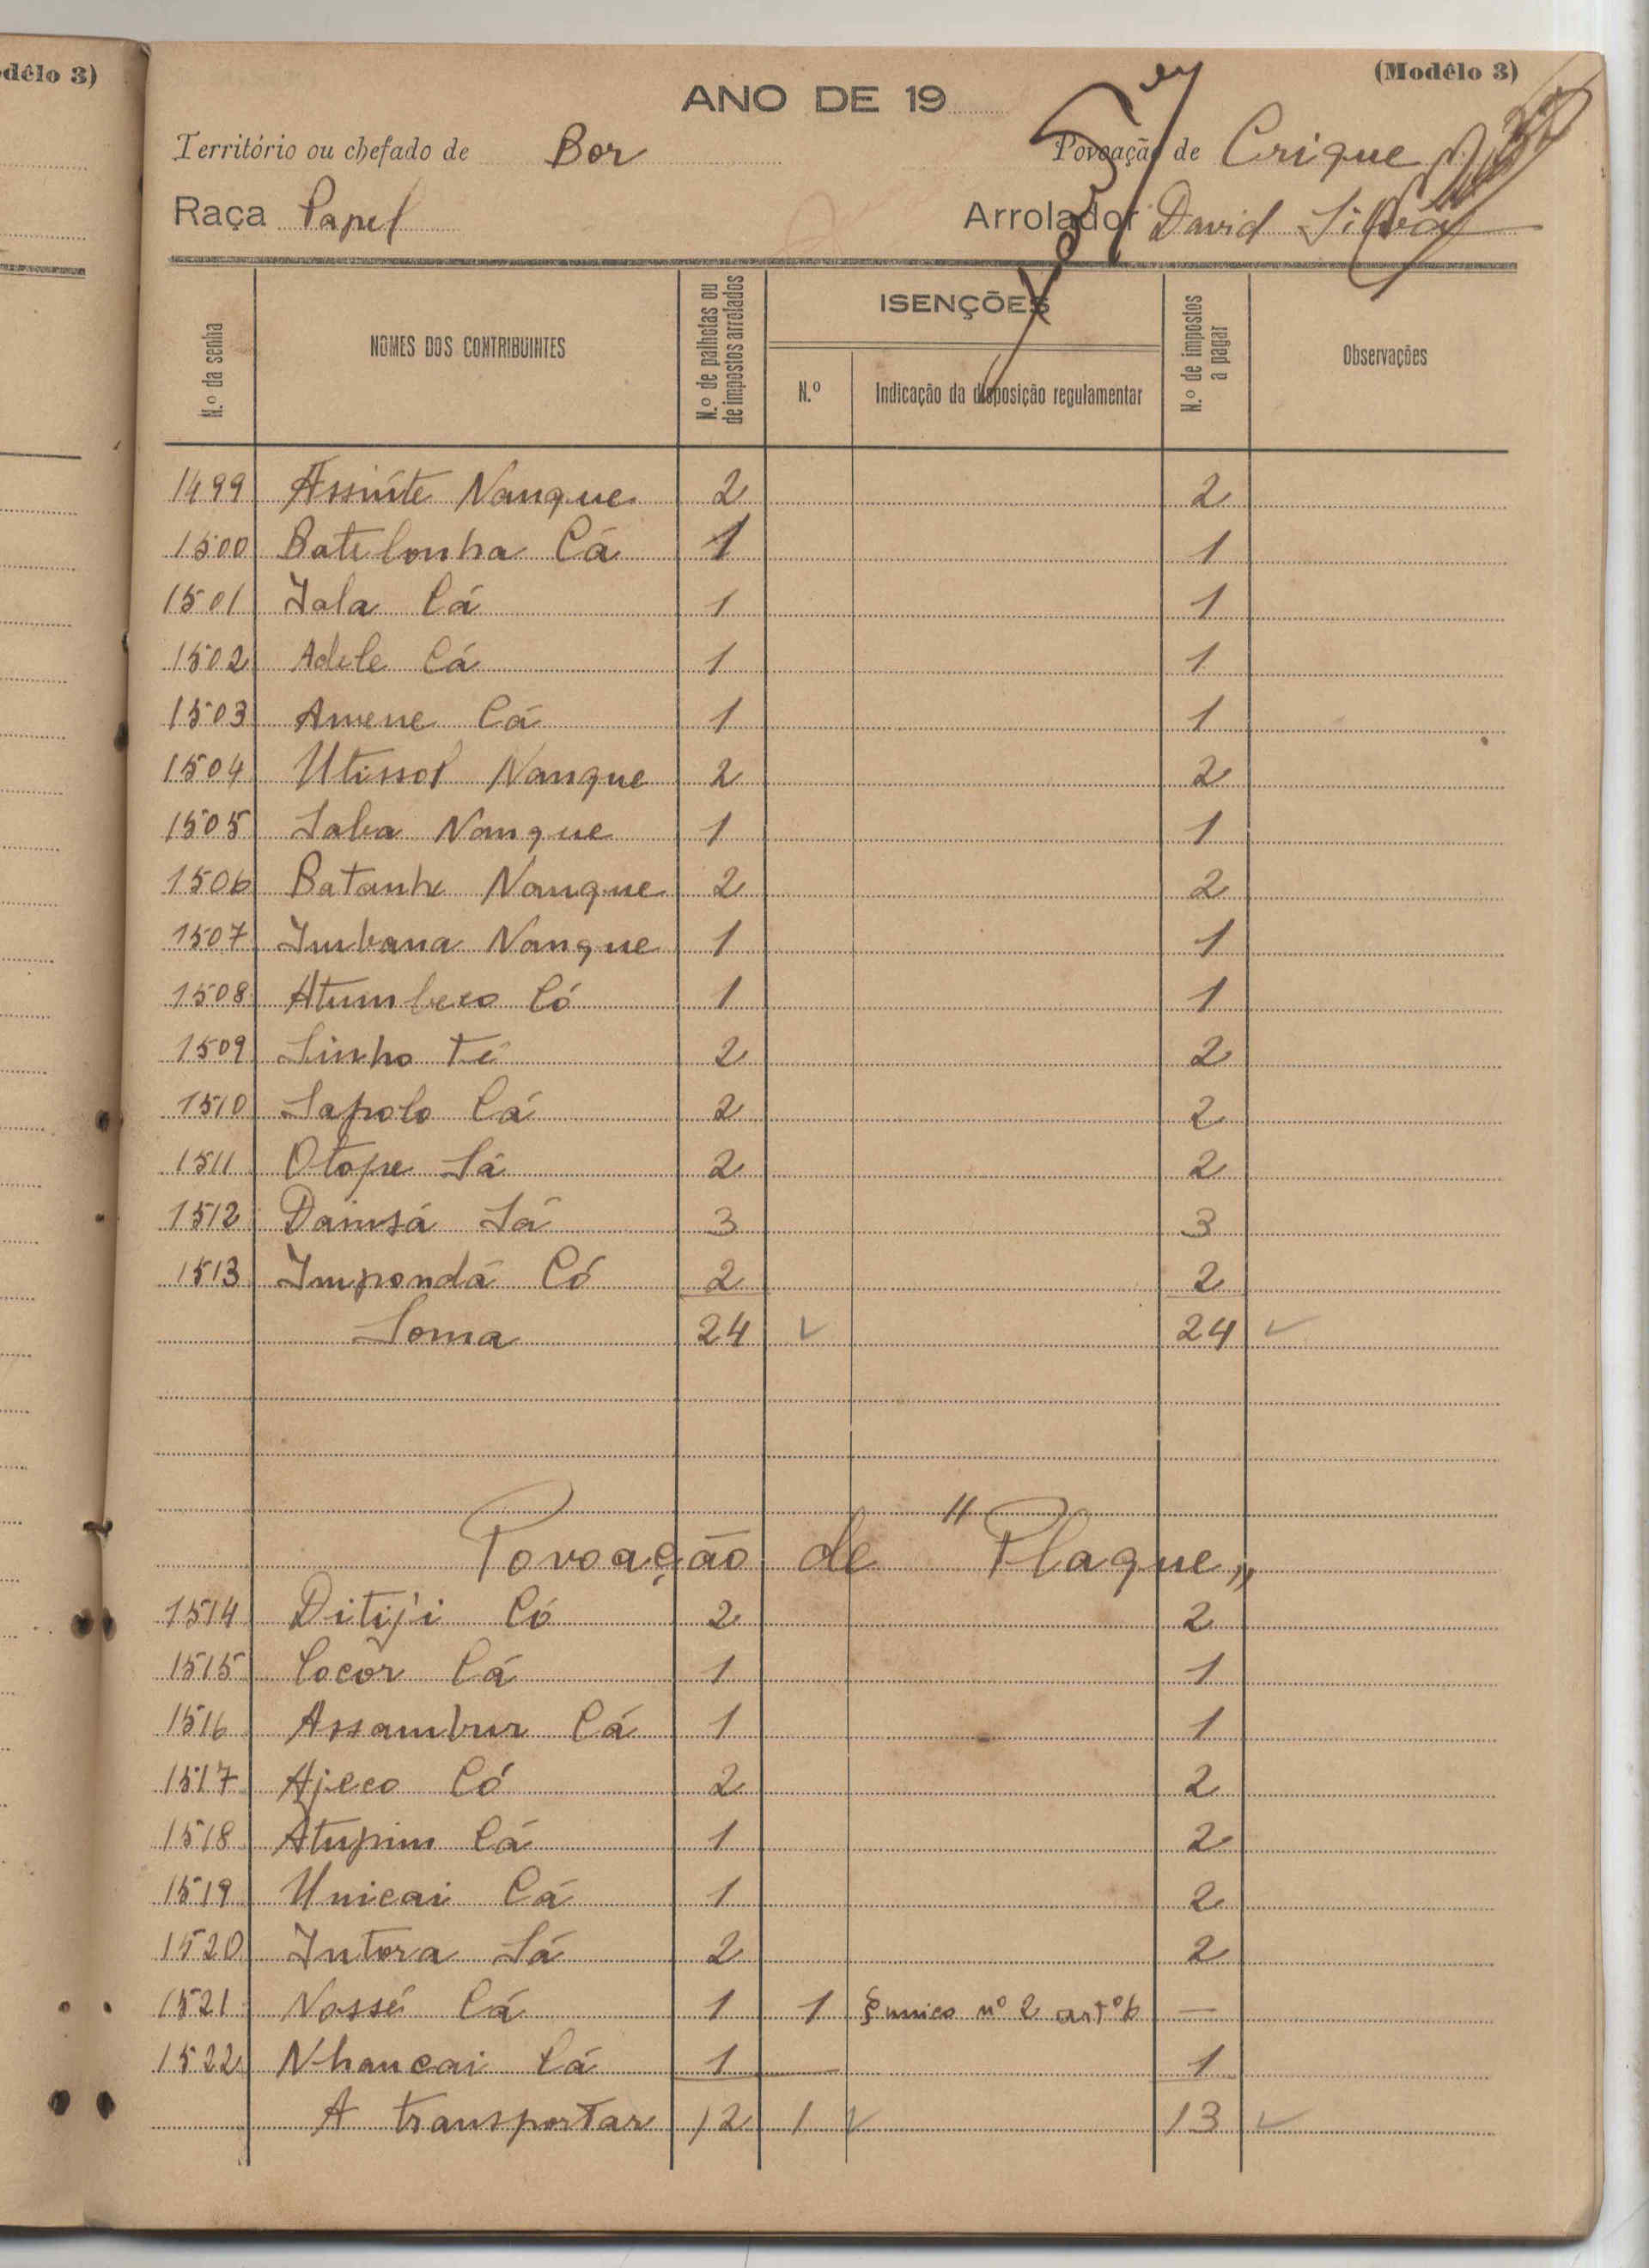 délo 3)
(Modêlo 3)
ANO DE 19
Território ou chefado de Bor Povoação de Crique
Raça Papel Arrolador David Silva
N.º da senha NOMES DOS CONTRIBUINTES N.º de palhotas ou de impostos arrolados ISENÇÕES N.º de impostos a pagar Observações
N.º Indicação da disposição regulamentar
1499 Assinte Nanque 2 2
1500 Batelonha Cá 1 1
1501 Iala Cá 1 1
1502 Adele Cá 1 1
1503 Amene Cá 1 1
1504 Utissol Nanque 2 2
1505 Saba Nanque 1 1
1506 Batanhe Nanque 2 2
1507 Imbana Nanque 1 1
1508 Atumbeco Có 1 1
1509 Sinho Té 2 2
1510 Sapolo Cá 2 2
1511 Otope Sá 2 2
1512 Dainsá Sá 3 3
1513 Impondá Có 2 2
Soma 24 ✓ 24 ✓
Povoação de "Plaque"
1514 Ditiji Có 2 2
1515 Cocor Cá 1 1
1516 Assambur Cá 1 1
1517 Ajeco Có 2 2
1518 Atupim Cá 1 2
1519 Unicai Cá 1 2
1520 Intora Sá 2 2
1521 Nossé Cá 1 1 § unico nº 2 artº 6 —
1522 Nhancai Cá 1 — 1
A transportar 12 1 ✓ 13 ✓